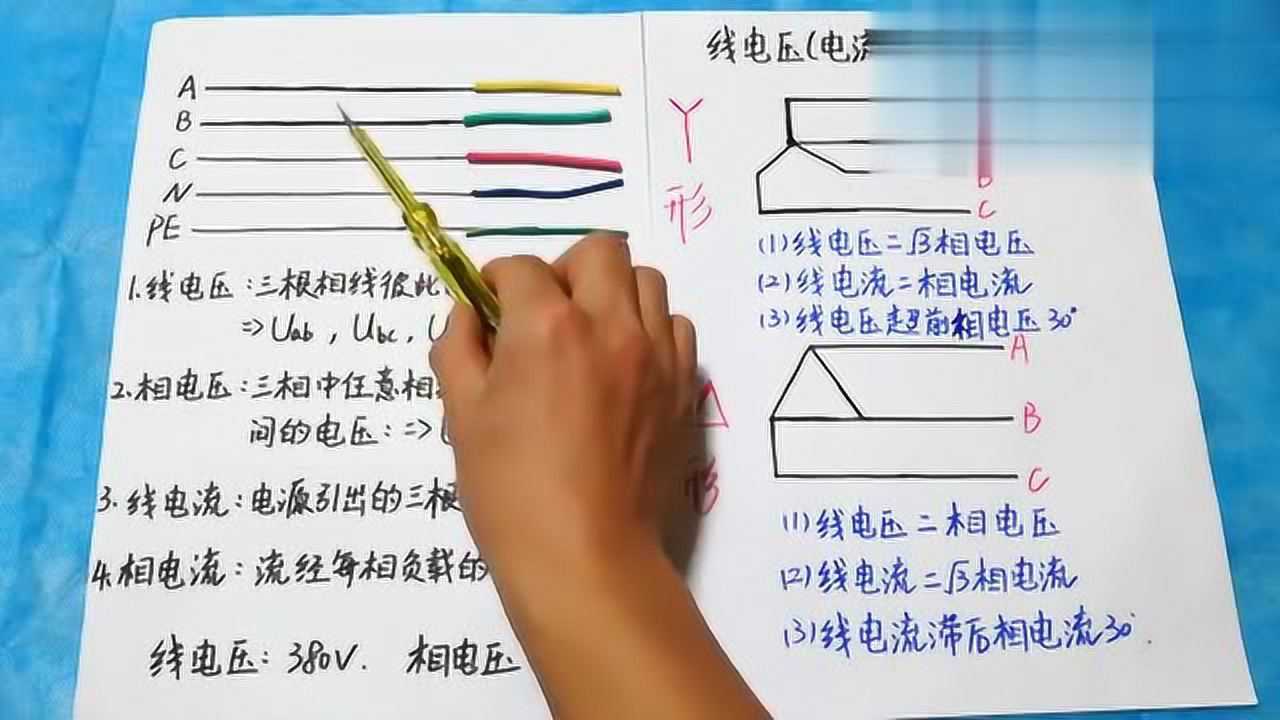 A
B
C
N
PE
1.线电压:三根相线彼此
=> Uab , Ubc , U
2.相电压:三相中任意相
间的电压: =>
3.线电流:电源引出的三根
4.相电流:流经每相负载的
线电压: 380V. 相电压
线电压(电流
Y
形
C
(1)线电压=√3相电压
(2)线电流=相电流
(3)线电压超前相电压30°
△
形
A
B
C
(1)线电压=相电压
(2)线电流=√3相电流
(3)线电流滞后相电流30°.